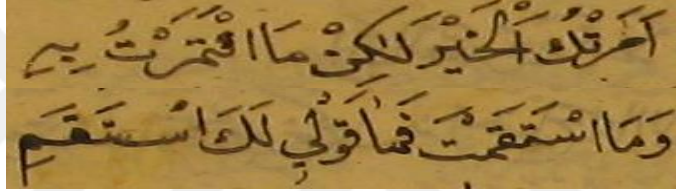 اَمَرْتُكَ الْخَيْرَ لَكِنْ مَا ائْتَمَرْتُ بِهِ
وَمَا اسْتَقَمْتُ فَمَا قَوْلِي لَكَ اسْتَقِمِ